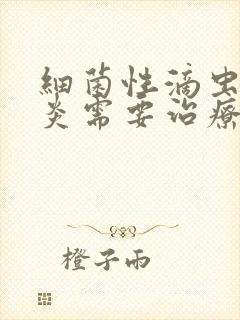 細菌性滴虫
炎需要治療
橙子雨